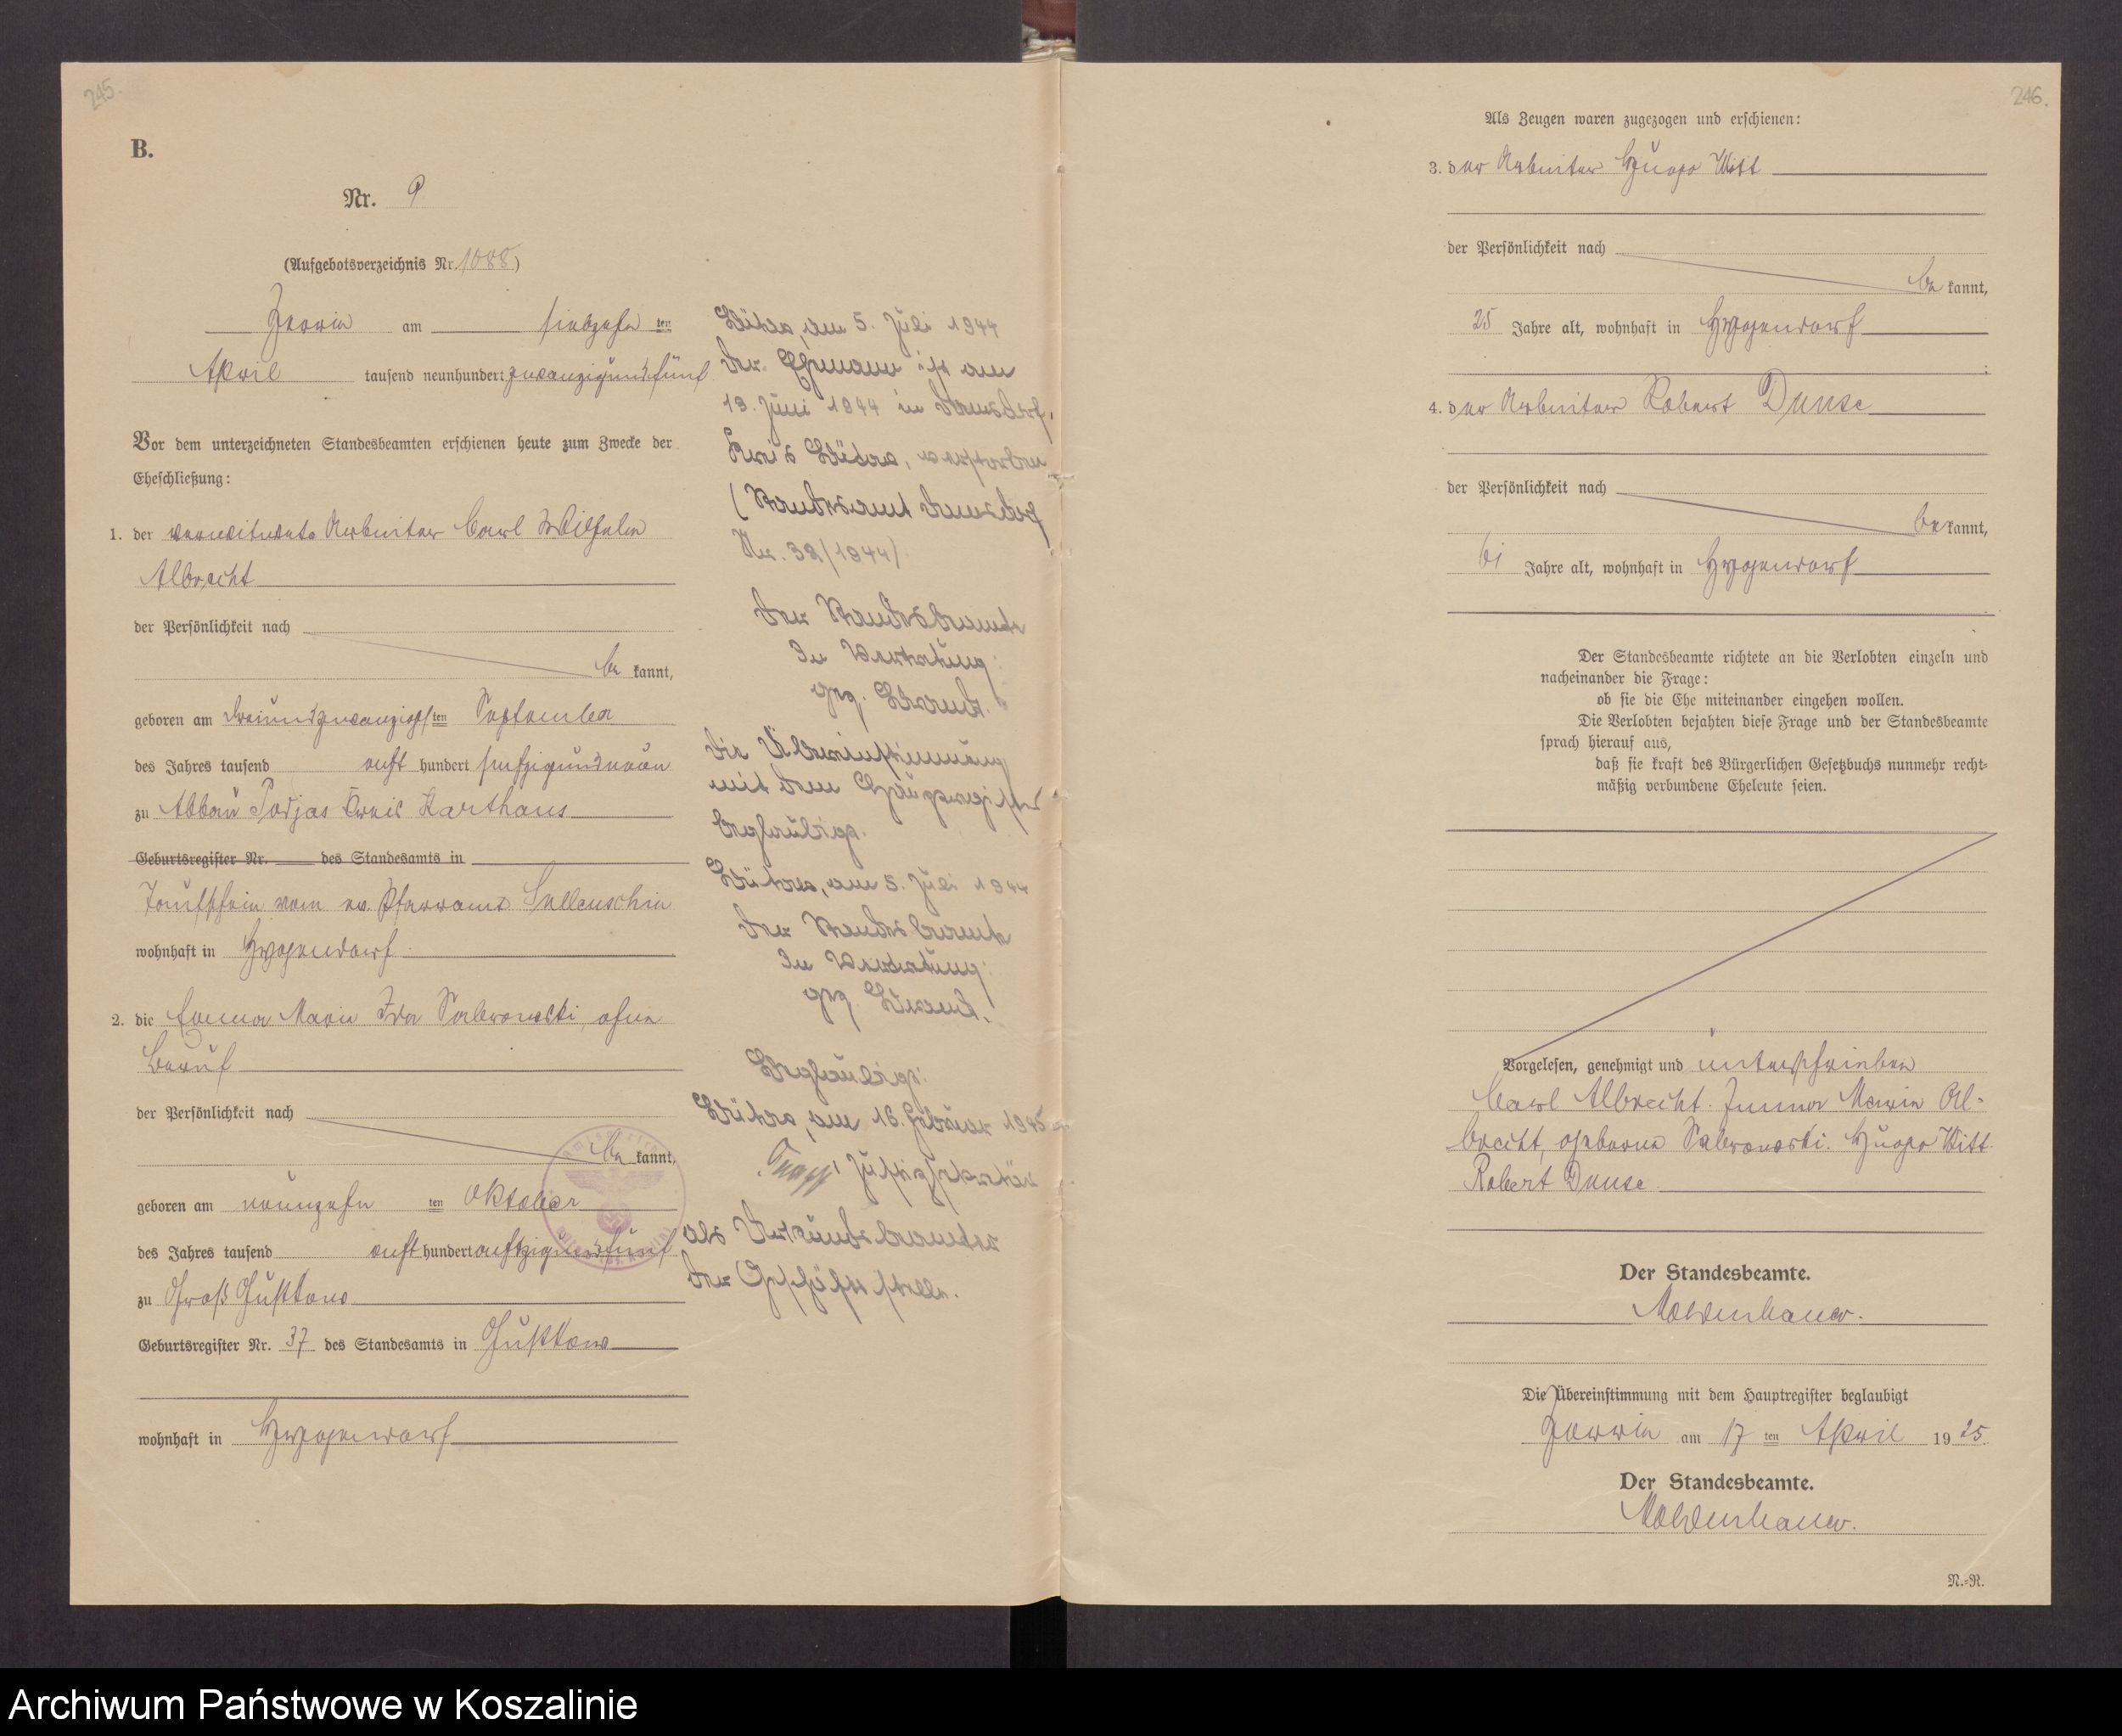 245.
B.
Nr. 9
(Aufgebotsverzeichnis Nr. 1088)
am siebzehn ten
April tausend neunhundert zwanzigundfünf
Vor dem unterzeichneten Standesbeamten erschienen heute zum Zwecke der
Eheschließung:
1. der verwitwete Arbeiter Carl Wilhelm
Albrecht
der Persönlichkeit nach
be kannt,
geboren am dreiundzwanzigsten September
des Jahres tausend acht hundert fünfzigundneun
zu Abbau Podjas Kreis Karthaus
Geburtsregister Nr. des Standesamts in
Taufschein vom ev. Pfarramt Sullenschin
wohnhaft in
2. die Emma Marie Ida Salewski, ohne
Beruf
der Persönlichkeit nach
be kannt,
geboren am neunzehn ten Oktober
des Jahres tausend acht hundert achtzigundfünf
zu Groß Gustkow
Geburtsregister Nr. 37 des Standesamts in Gustkow
wohnhaft in
Bütow, am 5. Juli 1944
Der Ehemann ist am
13. Juni 1944 in Damsdorf,
Kreis Bütow, verstorben
(Standesamt Damsdorf
Nr. 32/1944)
Der Standesbeamte
In Vertretung:
gez.
Die Übereinstimmung
mit dem Hauptregister
beglaubigt.
Bütow, am 5. Juli 1944
Der Standesbeamte
In Vertretung:
gez.
Beglaubigt:
Bütow, am 16. Februar 1945
Justizsekretär
als Urkundsbeamter
der Geschäftsstelle.
246.
Als Zeugen waren zugezogen und erschienen:
3. der Arbeiter Hugo Witt
der Persönlichkeit nach
be kannt,
25 Jahre alt, wohnhaft in
4. der Arbeiter Robert Dunse
der Persönlichkeit nach
be kannt,
61 Jahre alt, wohnhaft in
Der Standesbeamte richtete an die Verlobten einzeln und
nacheinander die Frage:
ob sie die Ehe miteinander eingehen wollen.
Die Verlobten bejahten diese Frage und der Standesbeamte
sprach hierauf aus,
daß sie kraft des Bürgerlichen Gesetzbuchs nunmehr recht-
mäßig verbundene Eheleute seien.
Vorgelesen, genehmigt und unterschrieben
Carl Albrecht. Emma Marie Al-
brecht, geborene Hugo Witt.
Robert Dunse
Der Standesbeamte.
Moldenhauer.
Die Übereinstimmung mit dem Hauptregister beglaubigt
am 17 ten April 1925.
Der Standesbeamte.
Moldenhauer.
N.-R.
Archiwum Państwowe w Koszalinie